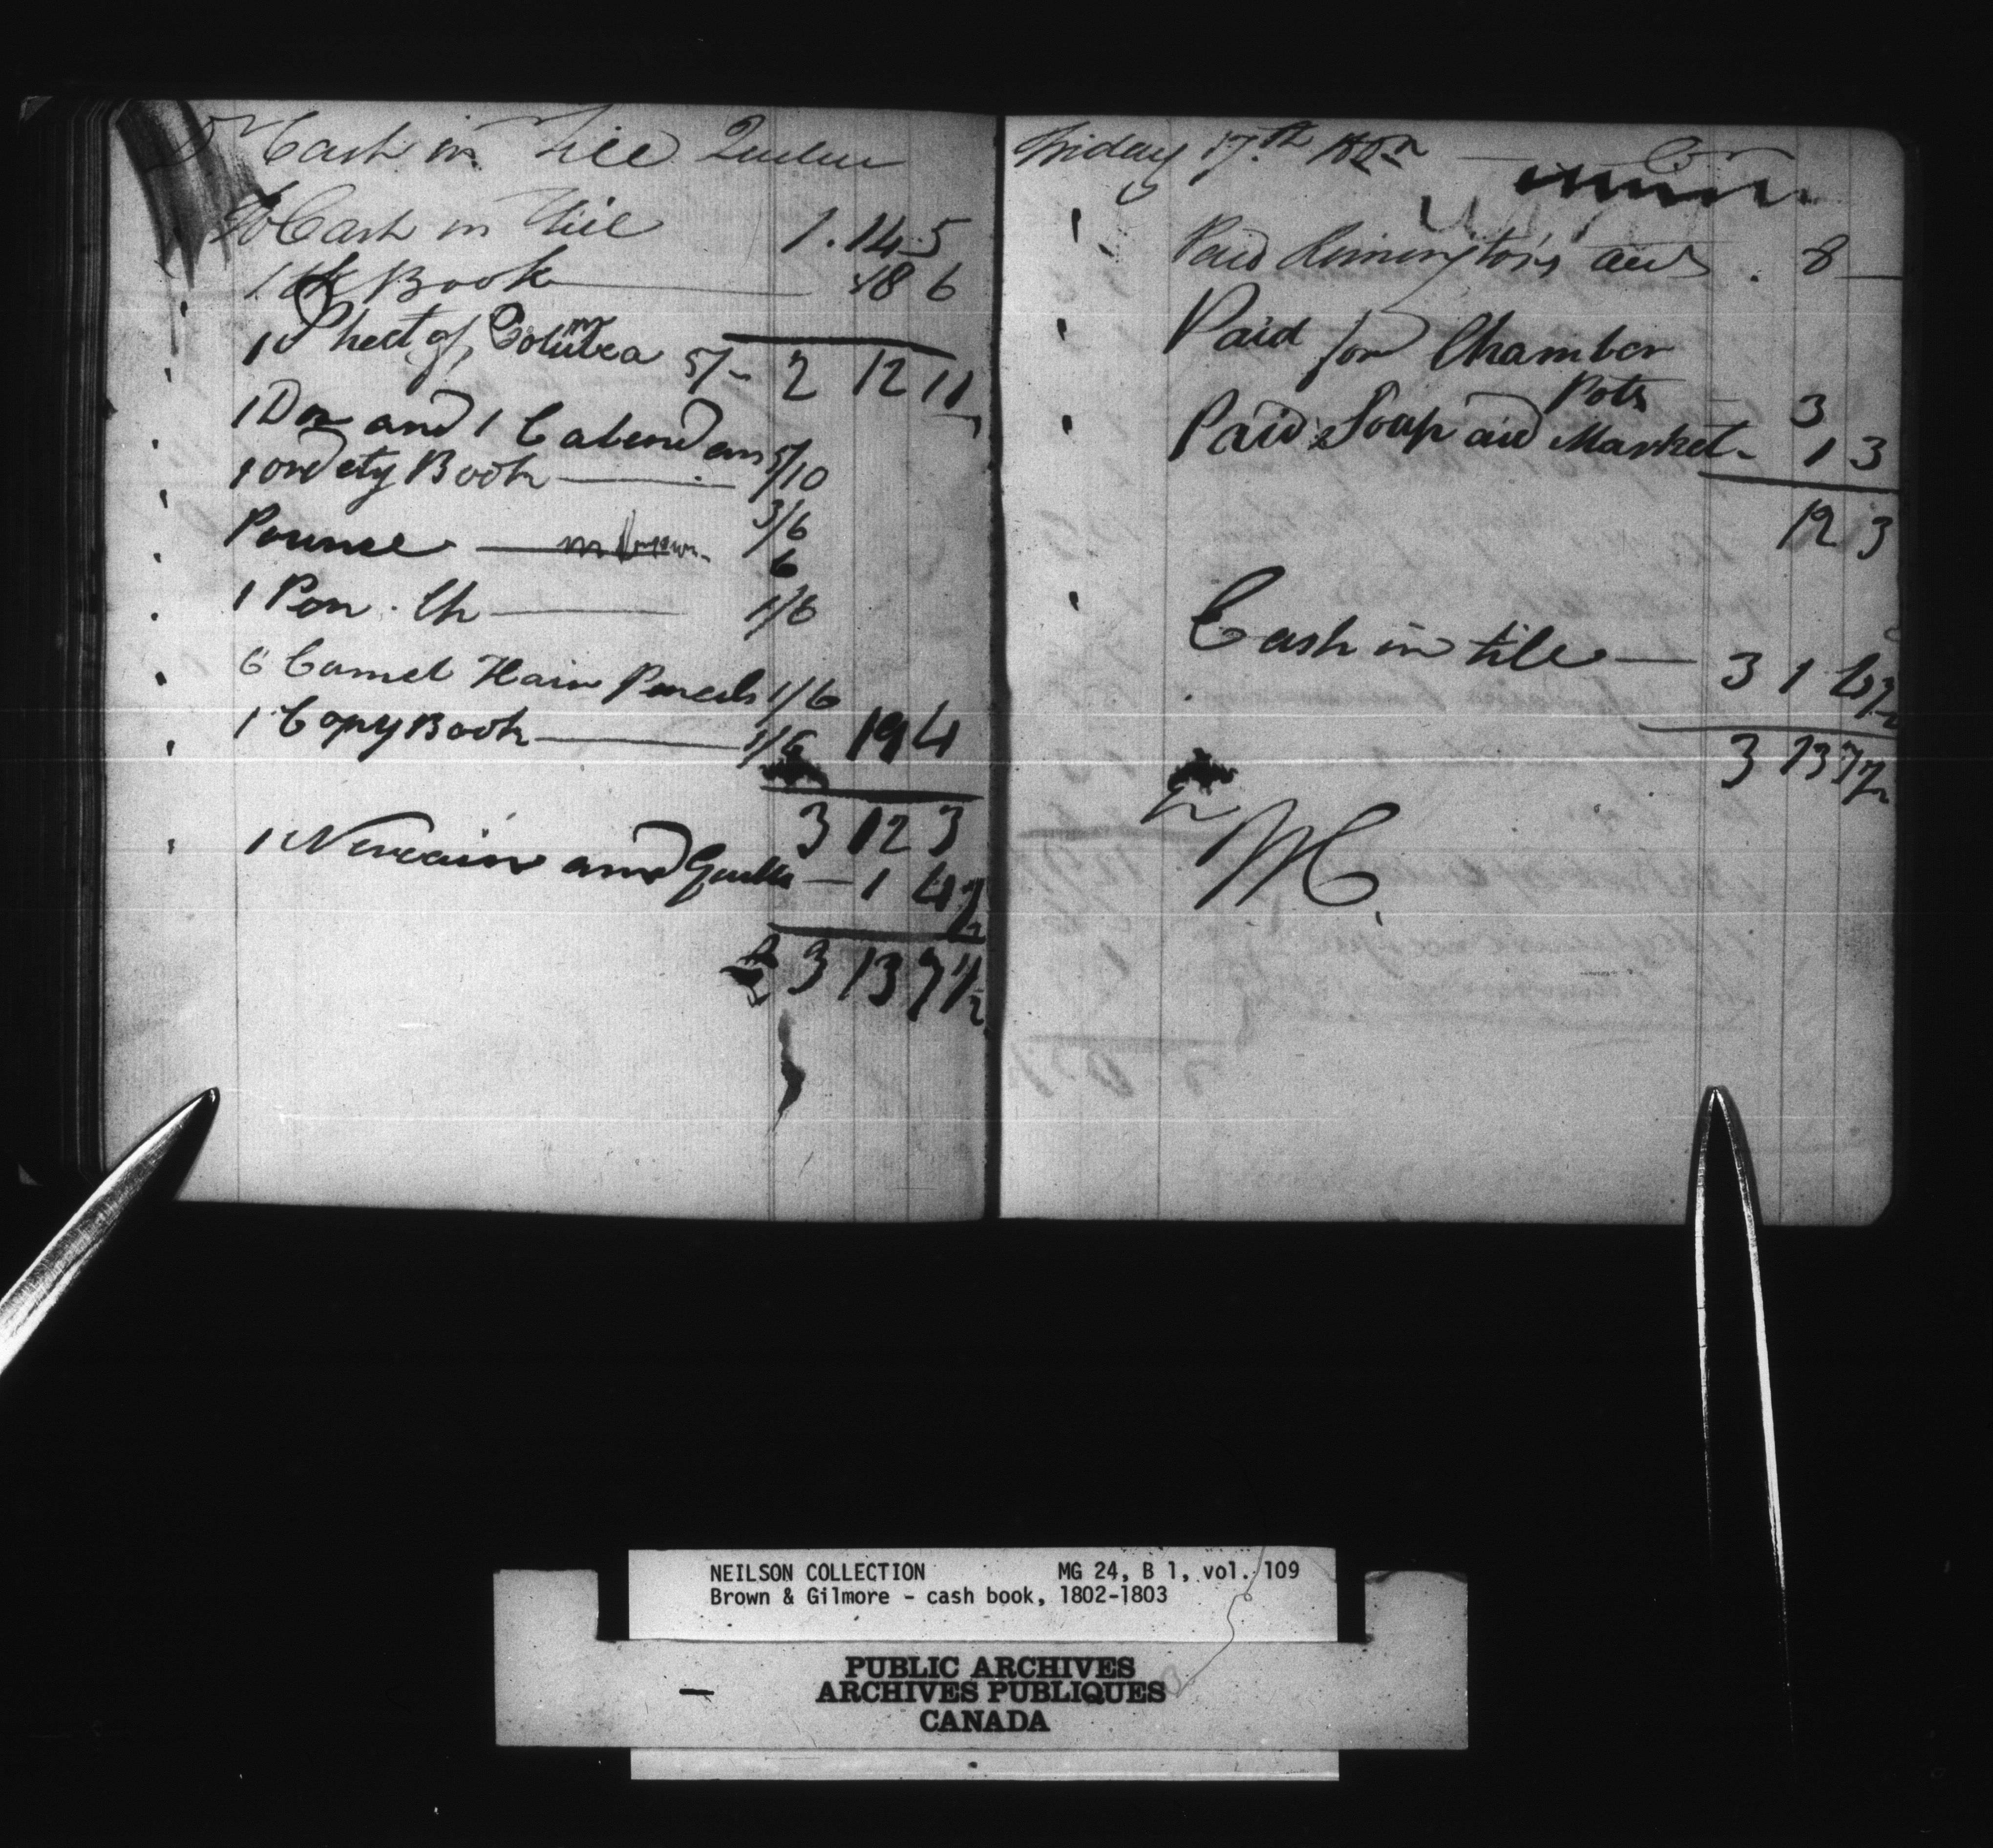 Dr Cash in Till Quebec
To Cash in Till 1.14.5
1 Book 18 6
1 Sheet of 5/- 2 12 11
1 Doz and 1 Calendars 5/10
1 Book 3/6
Pounce 6
1 Pen 1/6
6 Camel Hair Pencils 1/6
1 Copy Book 1/6 19 4
3 12 3
1 and Quills 1 4½
3 13 7½
Friday 17th Cr
Paid acct 8
Paid for Chamber
Pots 3
Paid Soap and Market 1 3
12 3
Cash in till 3 1 4½
3 13 7½
NEILSON COLLECTION MG 24, B 1, vol. 109
Brown & Gilmore - cash book, 1802-1803
PUBLIC ARCHIVES
ARCHIVES PUBLIQUES
CANADA